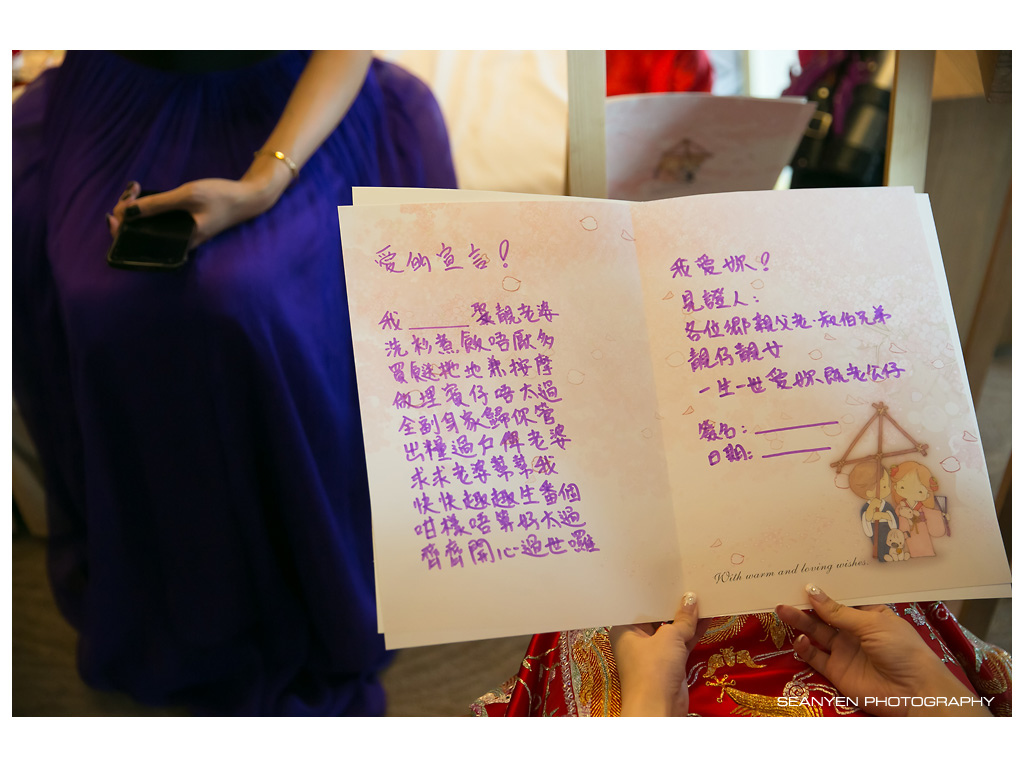 愛的宣言!
我 ______ 娶靚老婆
洗衫煮飯唔厭多
買餸拖地兼按摩
做理賓仔唔太過
全副身家歸你管
出糧過戶俾老婆
求求老婆幫幫我
快快趣趣生番個
咁樣唔算好太過
齊齊開心過世囉
我愛妳!
見證人:
各位鄉親父老·叔伯兄弟
靚仔靚女
一生一世愛妳既老公仔
簽名: ______
日期: ______
With warm and loving wishes.
SEANYEN PHOTOGRAPHY